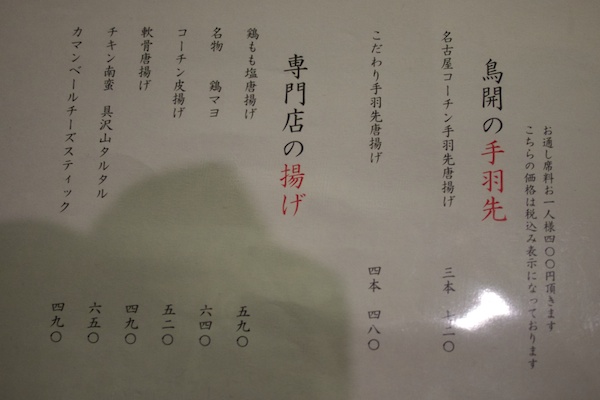 お通し席料お一人様四〇〇円頂きます
こちらの価格は税込み表示になっております
鳥開の手羽先
名古屋コーチン手羽先唐揚げ 三本 七二〇
こだわり手羽先唐揚げ 四本 四八〇
専門店の揚げ
鶏もも塩唐揚げ 五九〇
名物 鶏マヨ 六四〇
コーチン皮揚げ 五二〇
軟骨唐揚げ 四九〇
チキン南蛮 具沢山タルタル 六五〇
カマンベールチーズスティック 四九〇